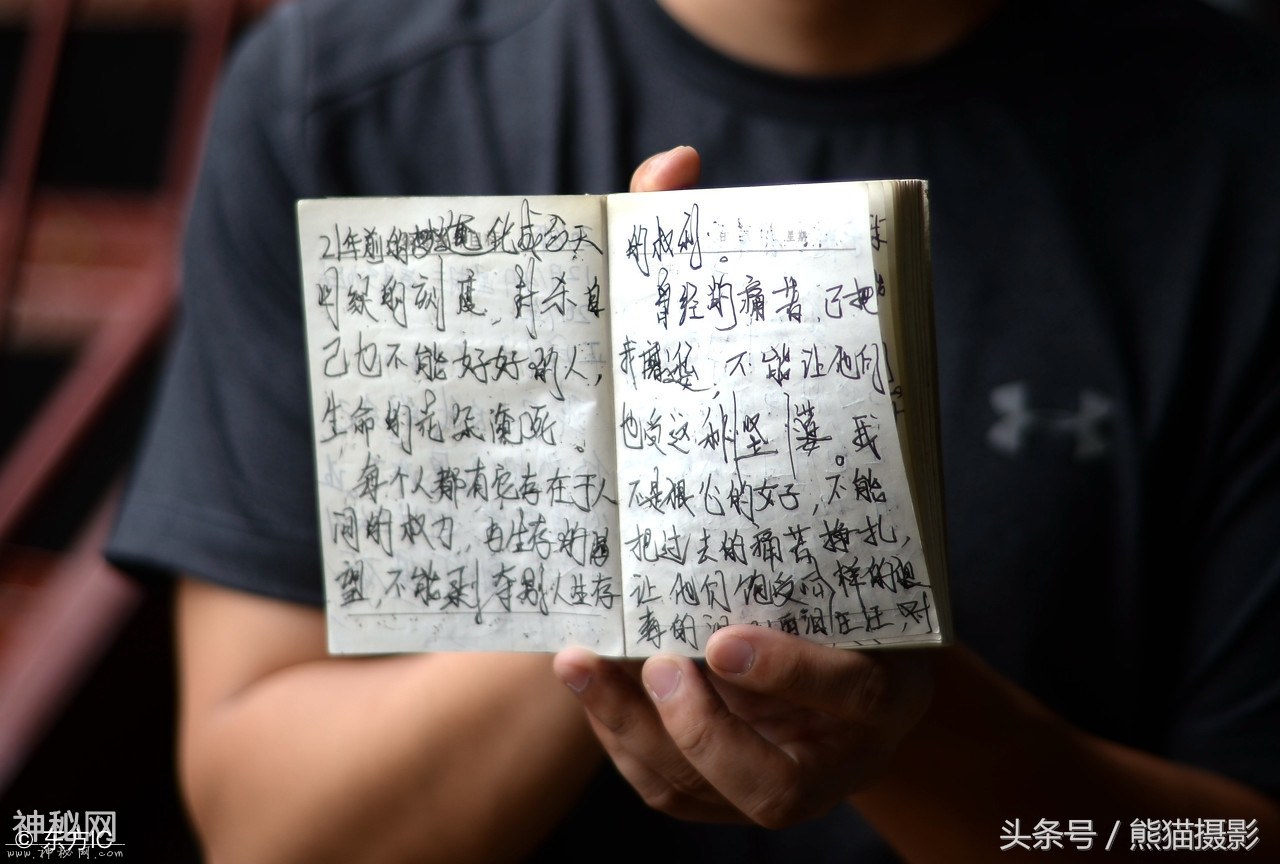 21年前的 化成百天
时候的刻度，封杀自
己也不能好好的人，
生命的花朵 死。
每个人都有它存在于人
间的权力，由生存的渴
望，不能剥夺别人生存
的权利。
星期
曾经的痛苦，已把
我磨 ，不能让他们
也受这种坠落。我
不是狠心的女子，不能
把过去的痛苦挣扎，
让他们饱受同样的
的 汪汪，对
神秘网
© 东方IC
www.神秘网.com
头条号 / 熊猫摄影